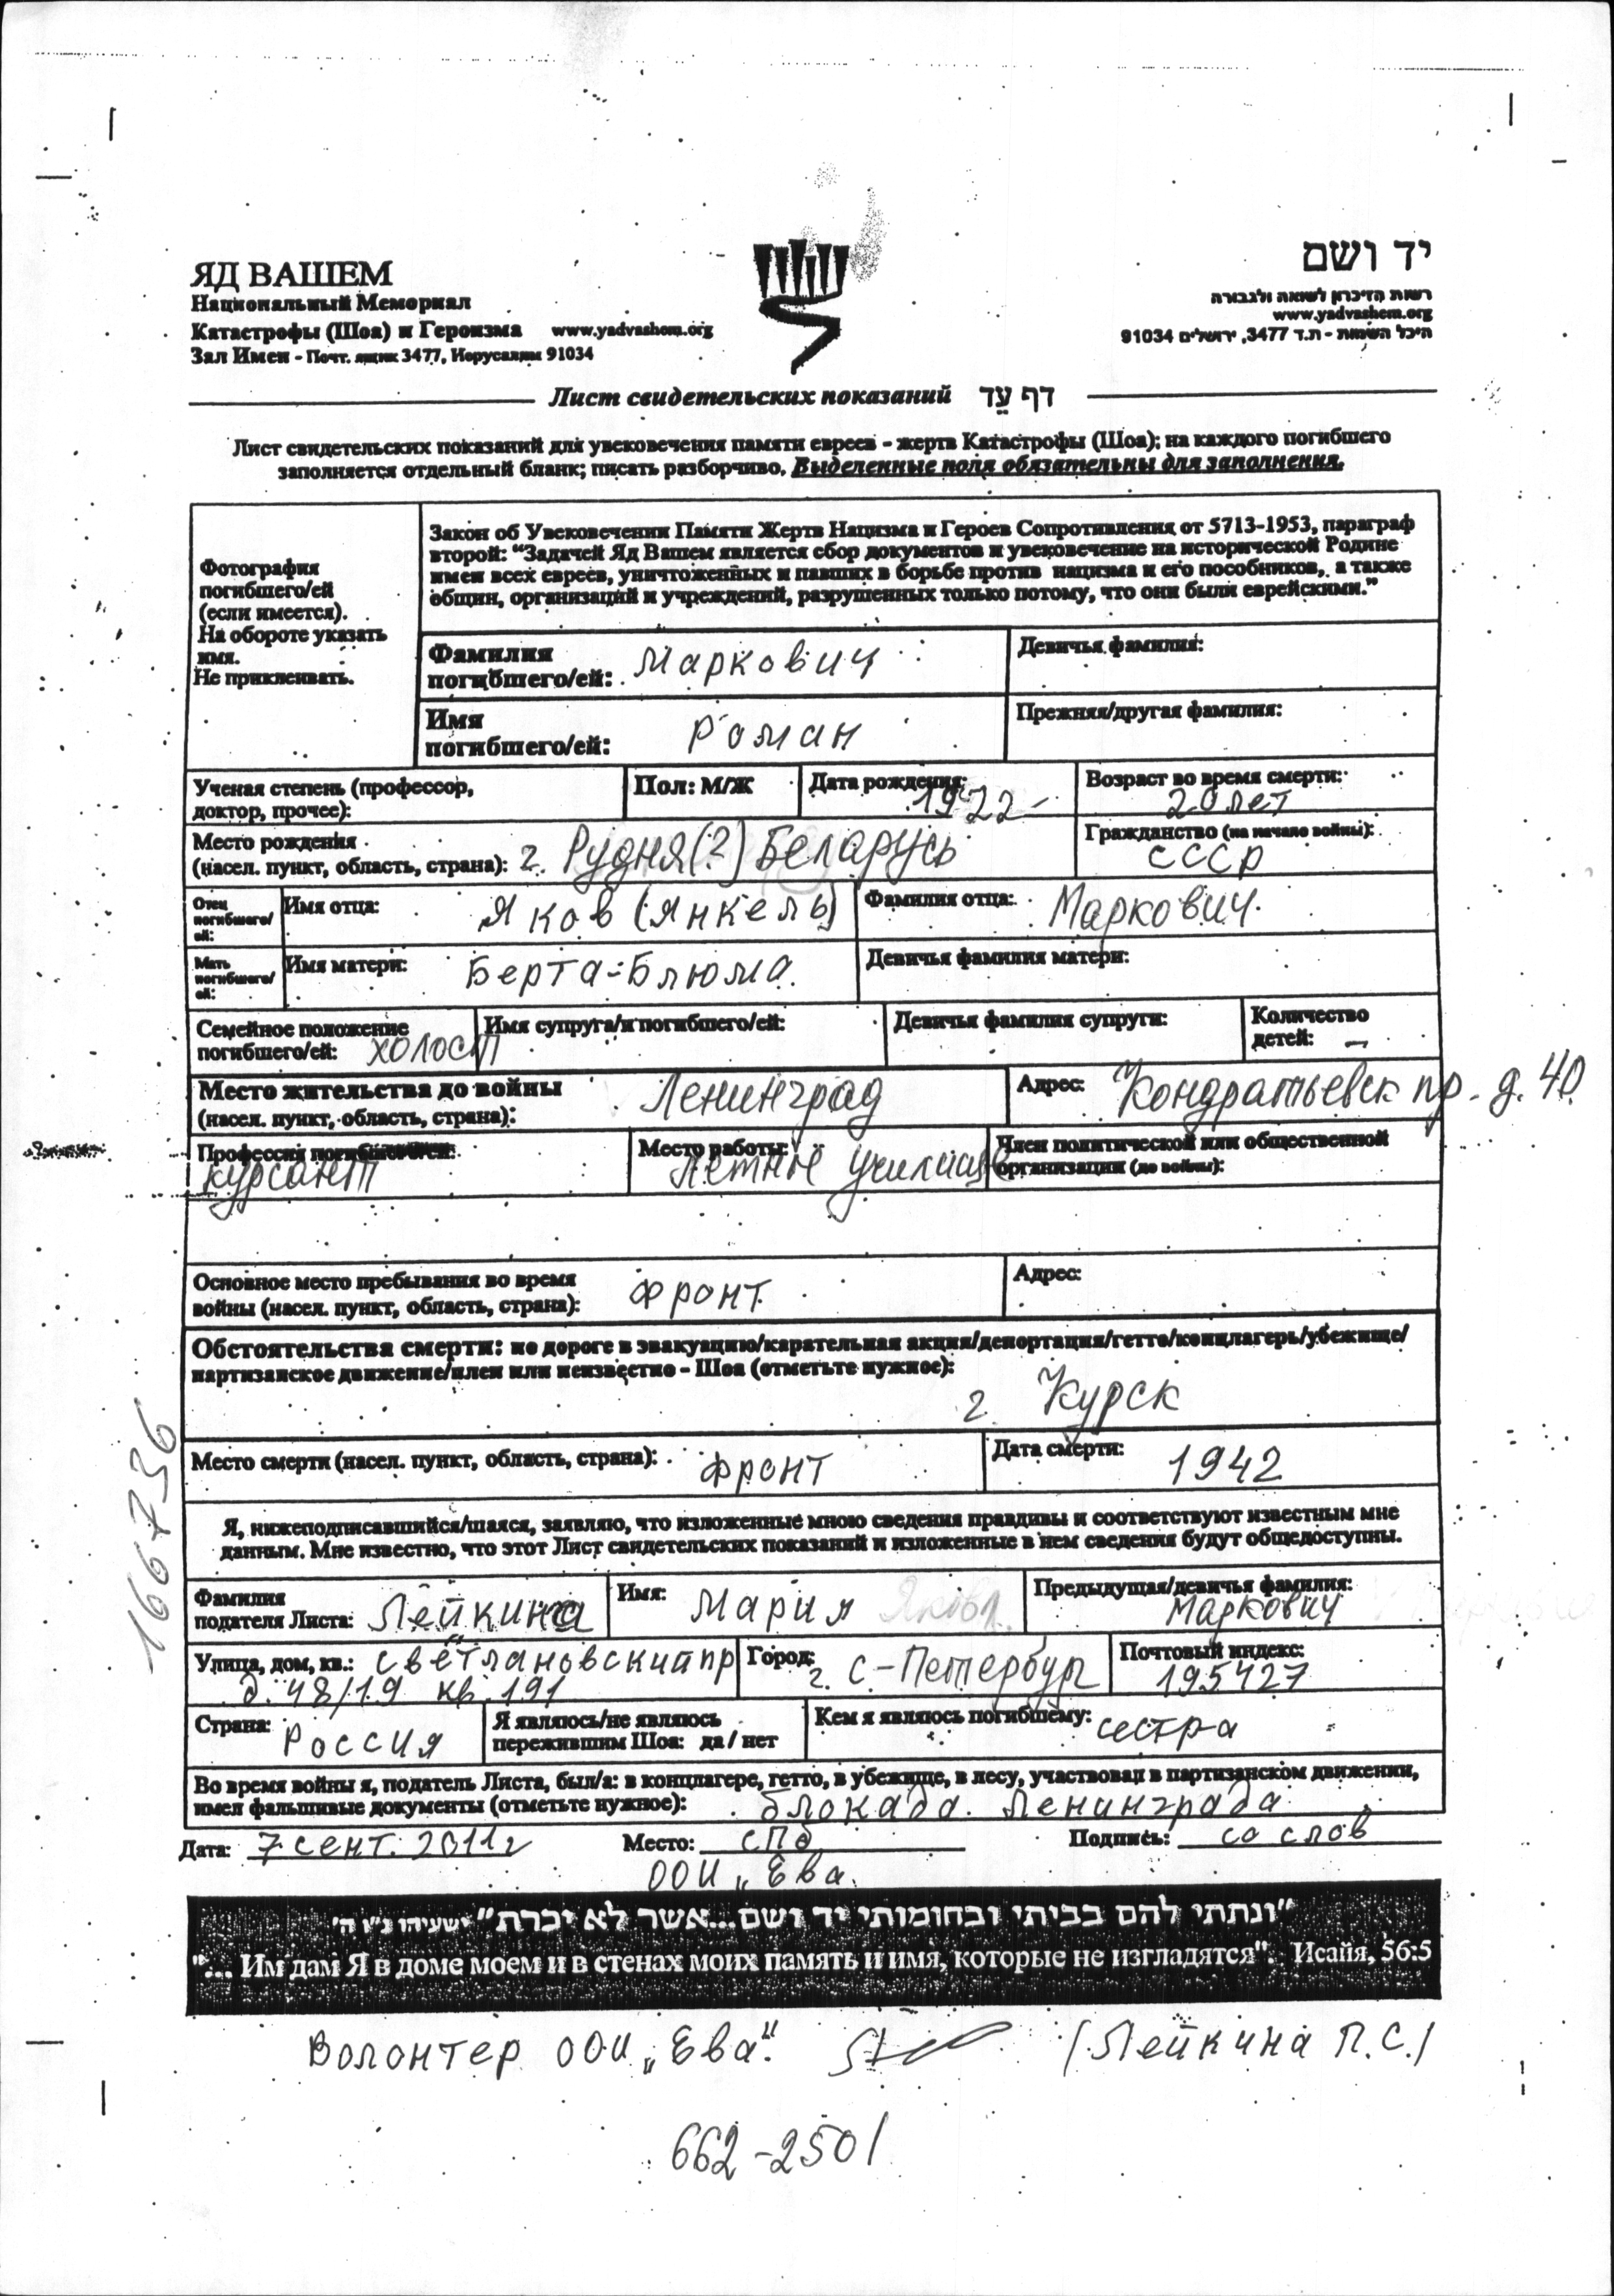 ЯД ВАШЕМ
Национальный Мемориал
Катастрофы (Шоа) и Героизма www.yadvashem.org
Зал Имен - Почт. ящик 3477, Иерусалим 91034
יד ושם
רשות הזיכרון לשואה ולגבורה
www.yadvashem.org
היכל השמות - ת.ד 3477, ירושלים 91034
Лист свидетельских показаний דף עֵד
Лист свидетельских показаний для увековечения памяти евреев - жертв Катастрофы (Шоа); на каждого погибшего
заполняется отдельный бланк; писать разборчиво. Выделенные поля обязательны для заполнения.
Фотография
погибшего/ей
(если имеется).
На обороте указать
имя.
Не приклеивать.
Закон об Увековечении Памяти Жертв Нацизма и Героев Сопротивления от 5713-1953, параграф
второй: "Задачей Яд Вашем является сбор документов и увековечение на исторической Родине
имен всех евреев, уничтоженных и павших в борьбе против нацизма и его пособников, а также
общин, организаций и учреждений, разрушенных только потому, что они были еврейскими."
Фамилия
погибшего/ей: Маркович
Девичья фамилия:
Имя
погибшего/ей: Роман
Прежняя/другая фамилия:
Ученая степень (профессор,
доктор, прочее):
Пол: М/Ж
Дата рождения:
1922
Возраст во время смерти:
20 лет
Место рождения
(насел. пункт, область, страна): г. Рудня(?) Беларусь
Гражданство (на начало войны):
СССР
Отец
погибшего/
ей:
Имя отца: Яков (Янкель)
Фамилия отца: Маркович
Мать
погибшего/
ей:
Имя матери: Берта-Блюма
Девичья фамилия матери:
Семейное положение
погибшего/ей: холост
Имя супруга/и погибшего/ей:
Девичья фамилия супруги:
Количество
детей: —
Место жительства до войны
(насел. пункт, область, страна): Ленинград
Адрес: Кондратьевск пр. д. 40
Профессия погибшего/ей:
курсант
Место работы:
Летное училище
Член политической или общественной
организации (до войны):
Основное место пребывания во время
войны (насел. пункт, область, страна): Фронт
Адрес:
Обстоятельства смерти: по дороге в эвакуацию/карательная акция/депортация/гетто/концлагерь/убежище/
партизанское движение/плен или неизвестно - Шоа (отметьте нужное):
г. Курск
Место смерти (насел. пункт, область, страна): Фронт
Дата смерти: 1942
Я, нижеподписавшийся/шаяся, заявляю, что изложенные мною сведения правдивы и соответствуют известным мне
данным. Мне известно, что этот Лист свидетельских показаний и изложенные в нем сведения будут общедоступны.
Фамилия
подателя Листа: Лейкина
Имя: Мария Яковл.
Предыдущая/девичья фамилия:
Маркович
Улица, дом, кв.: Светлановский пр
д. 48/19 кв. 191
Город: г. С-Петербург
Почтовый индекс:
195427
Страна: Россия
Я являюсь/не являюсь
пережившим Шоа: да / нет
Кем я являюсь погибшему: сестра
Во время войны я, податель Листа, был/а: в концлагере, гетто, в убежище, в лесу, участвовал в партизанском движении,
имел фальшивые документы (отметьте нужное): блокада Ленинграда
Дата: 7 сент. 2011г Место: СПб Подпись: со слов
ООИ „Ева
"ונתתי להם בביתי ובחומותי יד ושם...אשר לא יכרת" ישעיהו נ"ו ה'
"... Им дам Я в доме моем и в стенах моих память и имя, которые не изгладятся". Исайя, 56:5
Волонтер ООИ „Ева". (Лейкина П.С.)
662-2501
166736